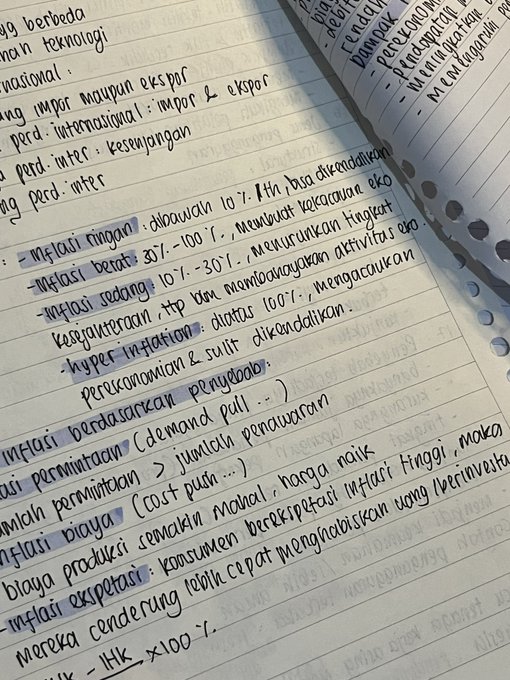 yg berbeda
teknologi
impor maupun ekspor
perd. internasional : impor & ekspor
perd. inter : kesenjangan
perd. inter
: - inflasi ringan : dibawah 10% /th, bisa dikendalikan
- inflasi berat : 30% - 100%, membuat kekacauan eko
- inflasi sedang : 10% - 30%, menurunkan tingkat
kesejahteraan, ttp blm membahayakan aktivitas eko.
- hyper inflation : diatas 100%, mengacaukan
perekonomian & sulit dikendalikan.
inflasi berdasarkan penyebab :
permintaan (demand pull ...)
permintaan > jumlah penawaran
inflasi biaya (cost push ...)
biaya produksi semakin mahal, harga naik
- inflasi ekspetasi : konsumen berekspetasi inflasi tinggi, maka
mereka cenderung lebih cepat menghabiskan uang /berinvesta
- IHK x 100%
Dampak :
- perekonom
- pendapatan
- meningkatkan
- memengaruhi